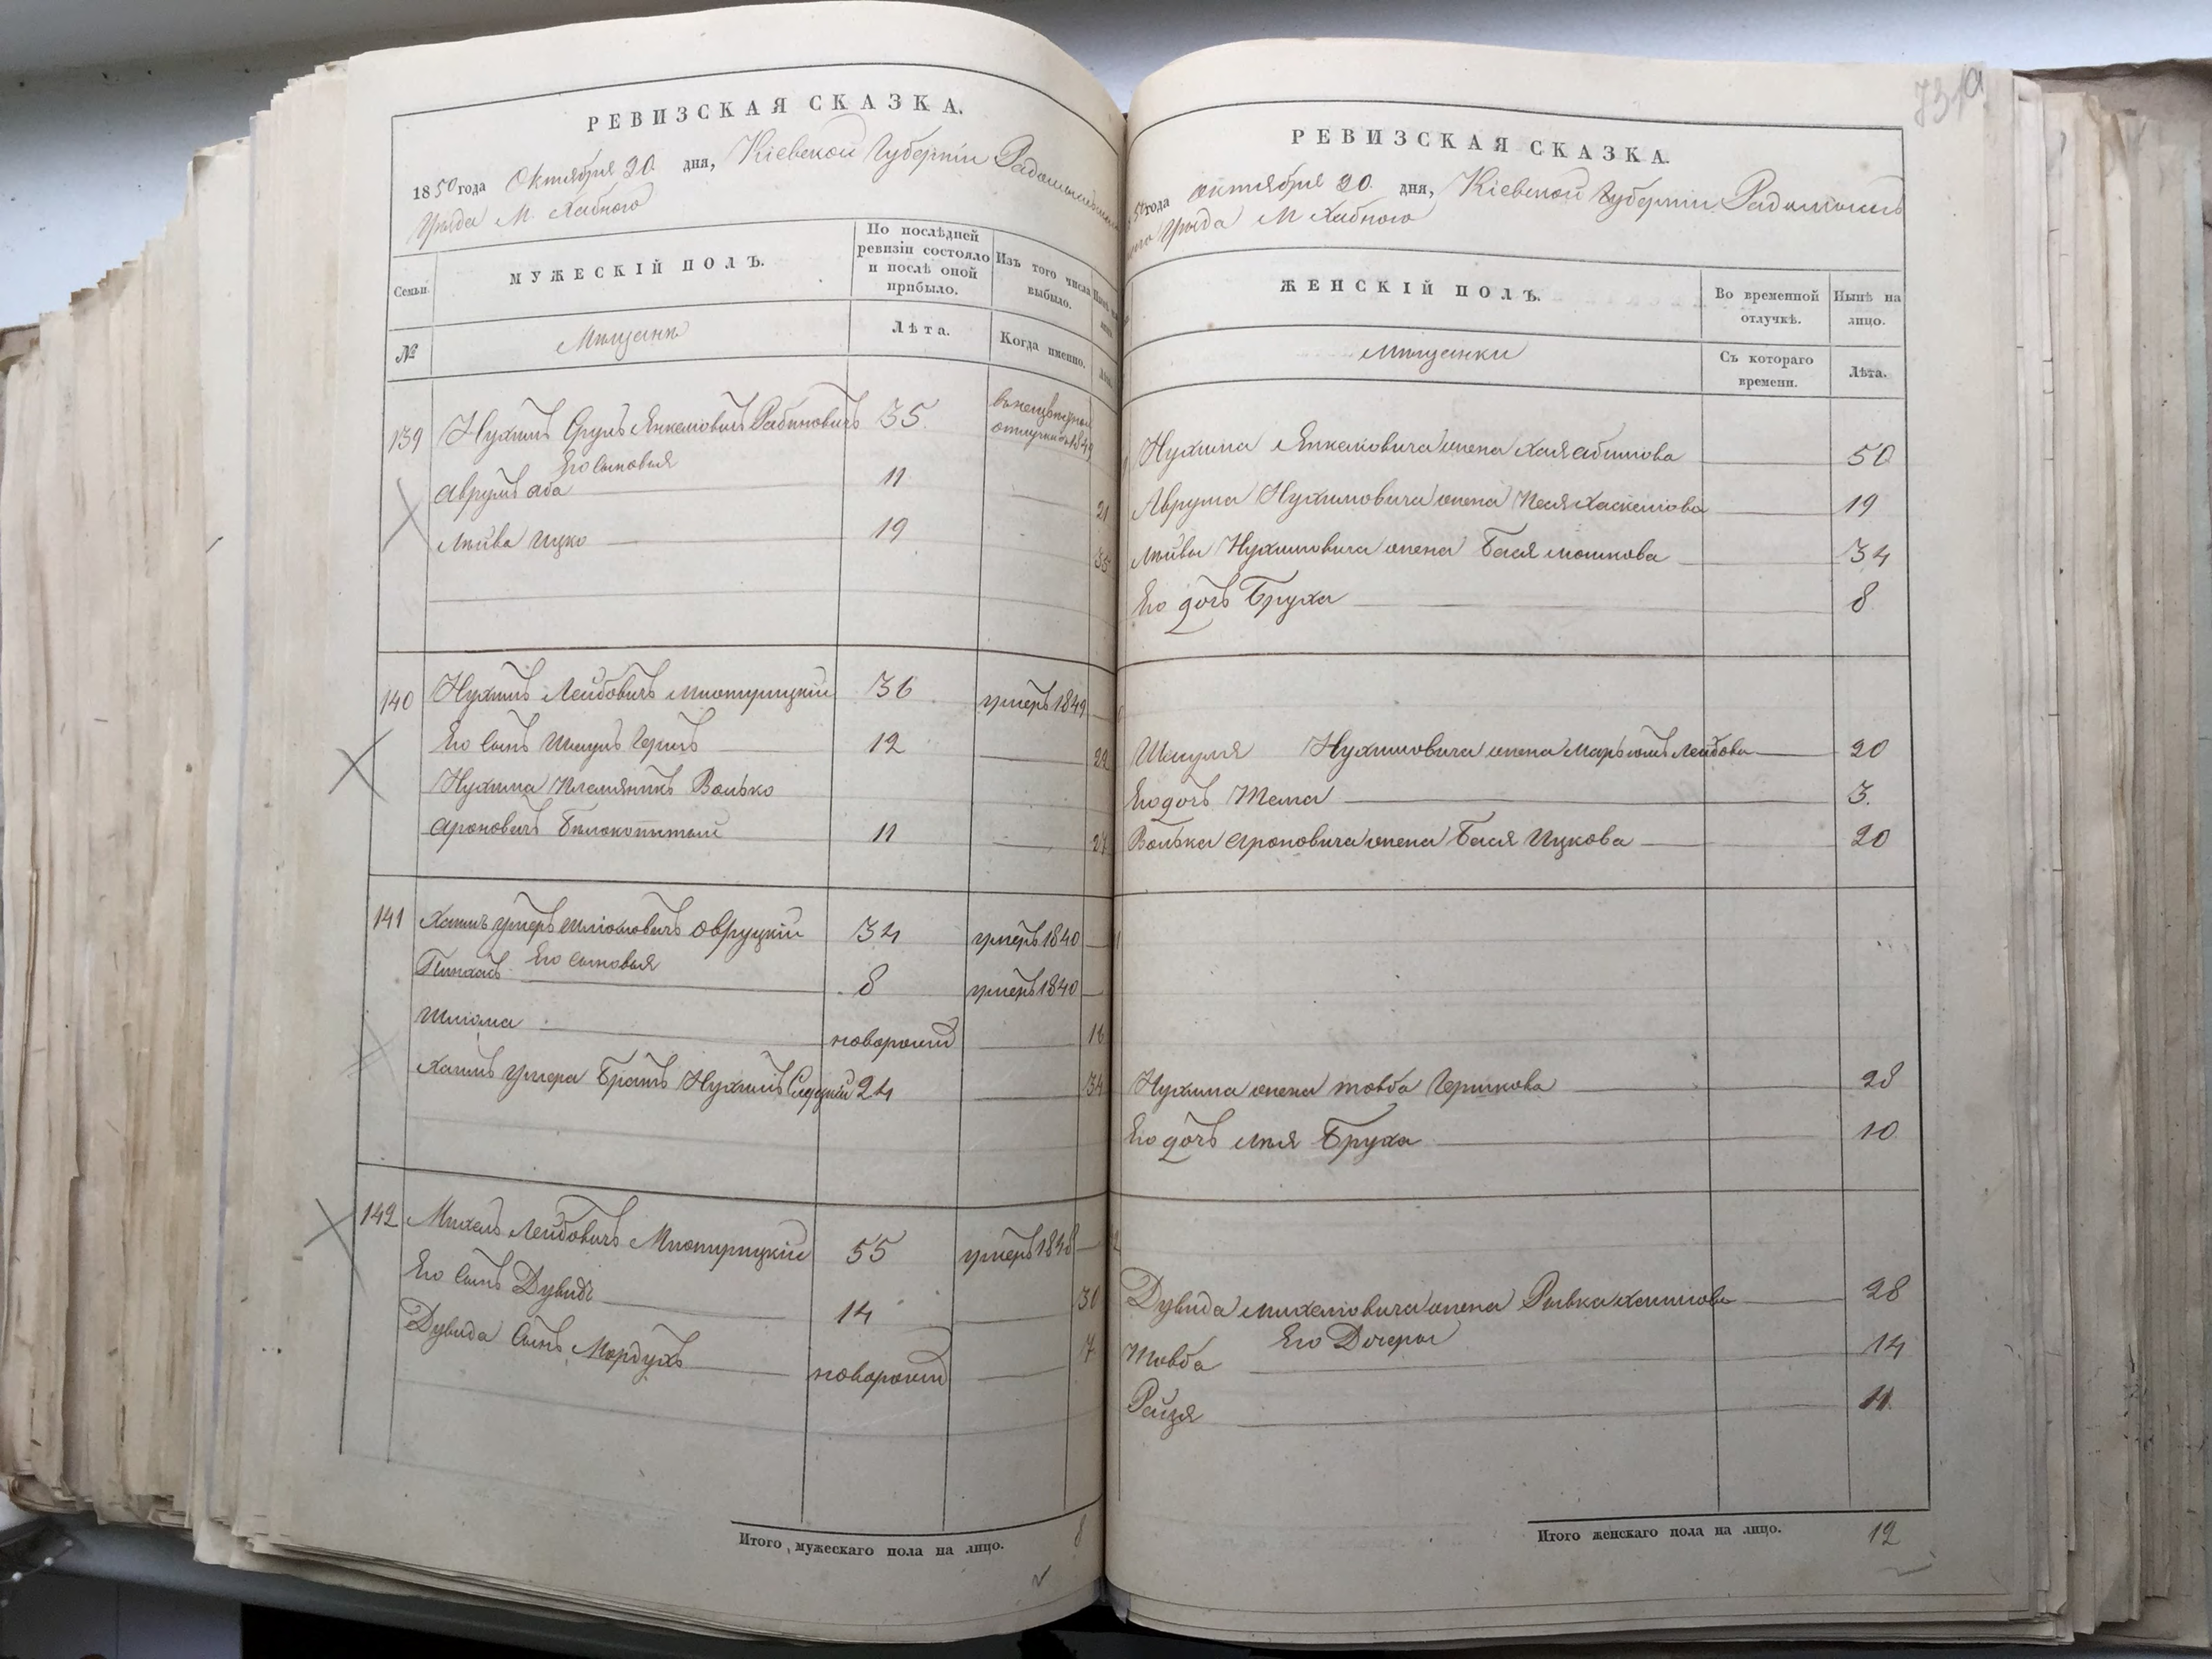 РЕВИЗСКАЯ СКАЗКА.
1850 года Октября 20 дня, Кіевской Губерніи
Уезда М. Хабного
Семьи.
МУЖЕСКІЙ ПОЛЪ.
По послѣдней ревизіи состояло и послѣ оной прибыло.
Изъ того числа выбыло.
№
Мещане
Лѣта.
Когда именно.
Лѣта.
139 Нухимъ Сруль Янкелювичъ Рабиновичъ 35
Его сыновья
Аврумъ Аба 11 21
Лейва Ицко 19 35
140 Нухимъ Лейбовичъ 36 умеръ 1849
Его сынъ Шмуль Гершъ 12 22
Нухима Племянникъ Волько
Ароновичъ Белокопытый 11 21
141 Хаимъ умеръ Шліомовичъ Овруцкій 34 умеръ 1840
Его сыновья
Пинхасъ 8 умеръ 1840
Шліома новорожд 16
Хаимъ умера Братъ Нухимъ 24 34
142 Михель Лейбовичъ 55 умеръ 1848
Его сынъ Дувидъ 14 30
Дувида сынъ Мордухъ новорожд 7
Итого мужескаго пола на лицо. 8
731а
РЕВИЗСКАЯ СКАЗКА.
октября 20 дня, Кіевской Губерніи
Уезда М Хабного
ЖЕНСКІЙ ПОЛЪ.
Во временной отлучкѣ.
Нынѣ на лицо.
Мещанки
Съ котораго времени.
Лѣта.
Нухима Янкелювича жена Хая Абимова 50
Аврума Нухимовича жена Песя Хаскелова 19
Лейвы Нухимовича жена Бася Мошкова 34
Его дочь Бруха 8
Шмуля Нухимовича жена Марьямъ Лейбова 20
Его дочь Тема 3.
Волька Ароновича жена Бася Ицкова 20
Нухима жена Товба Гершкова 28
Его дочь Лея Бруха 10
Дувида Михелювича жена Рывка Хаимова 28
Его Дочери
Товба 14
Рейзя 11
Итого женскаго пола на лицо. 12